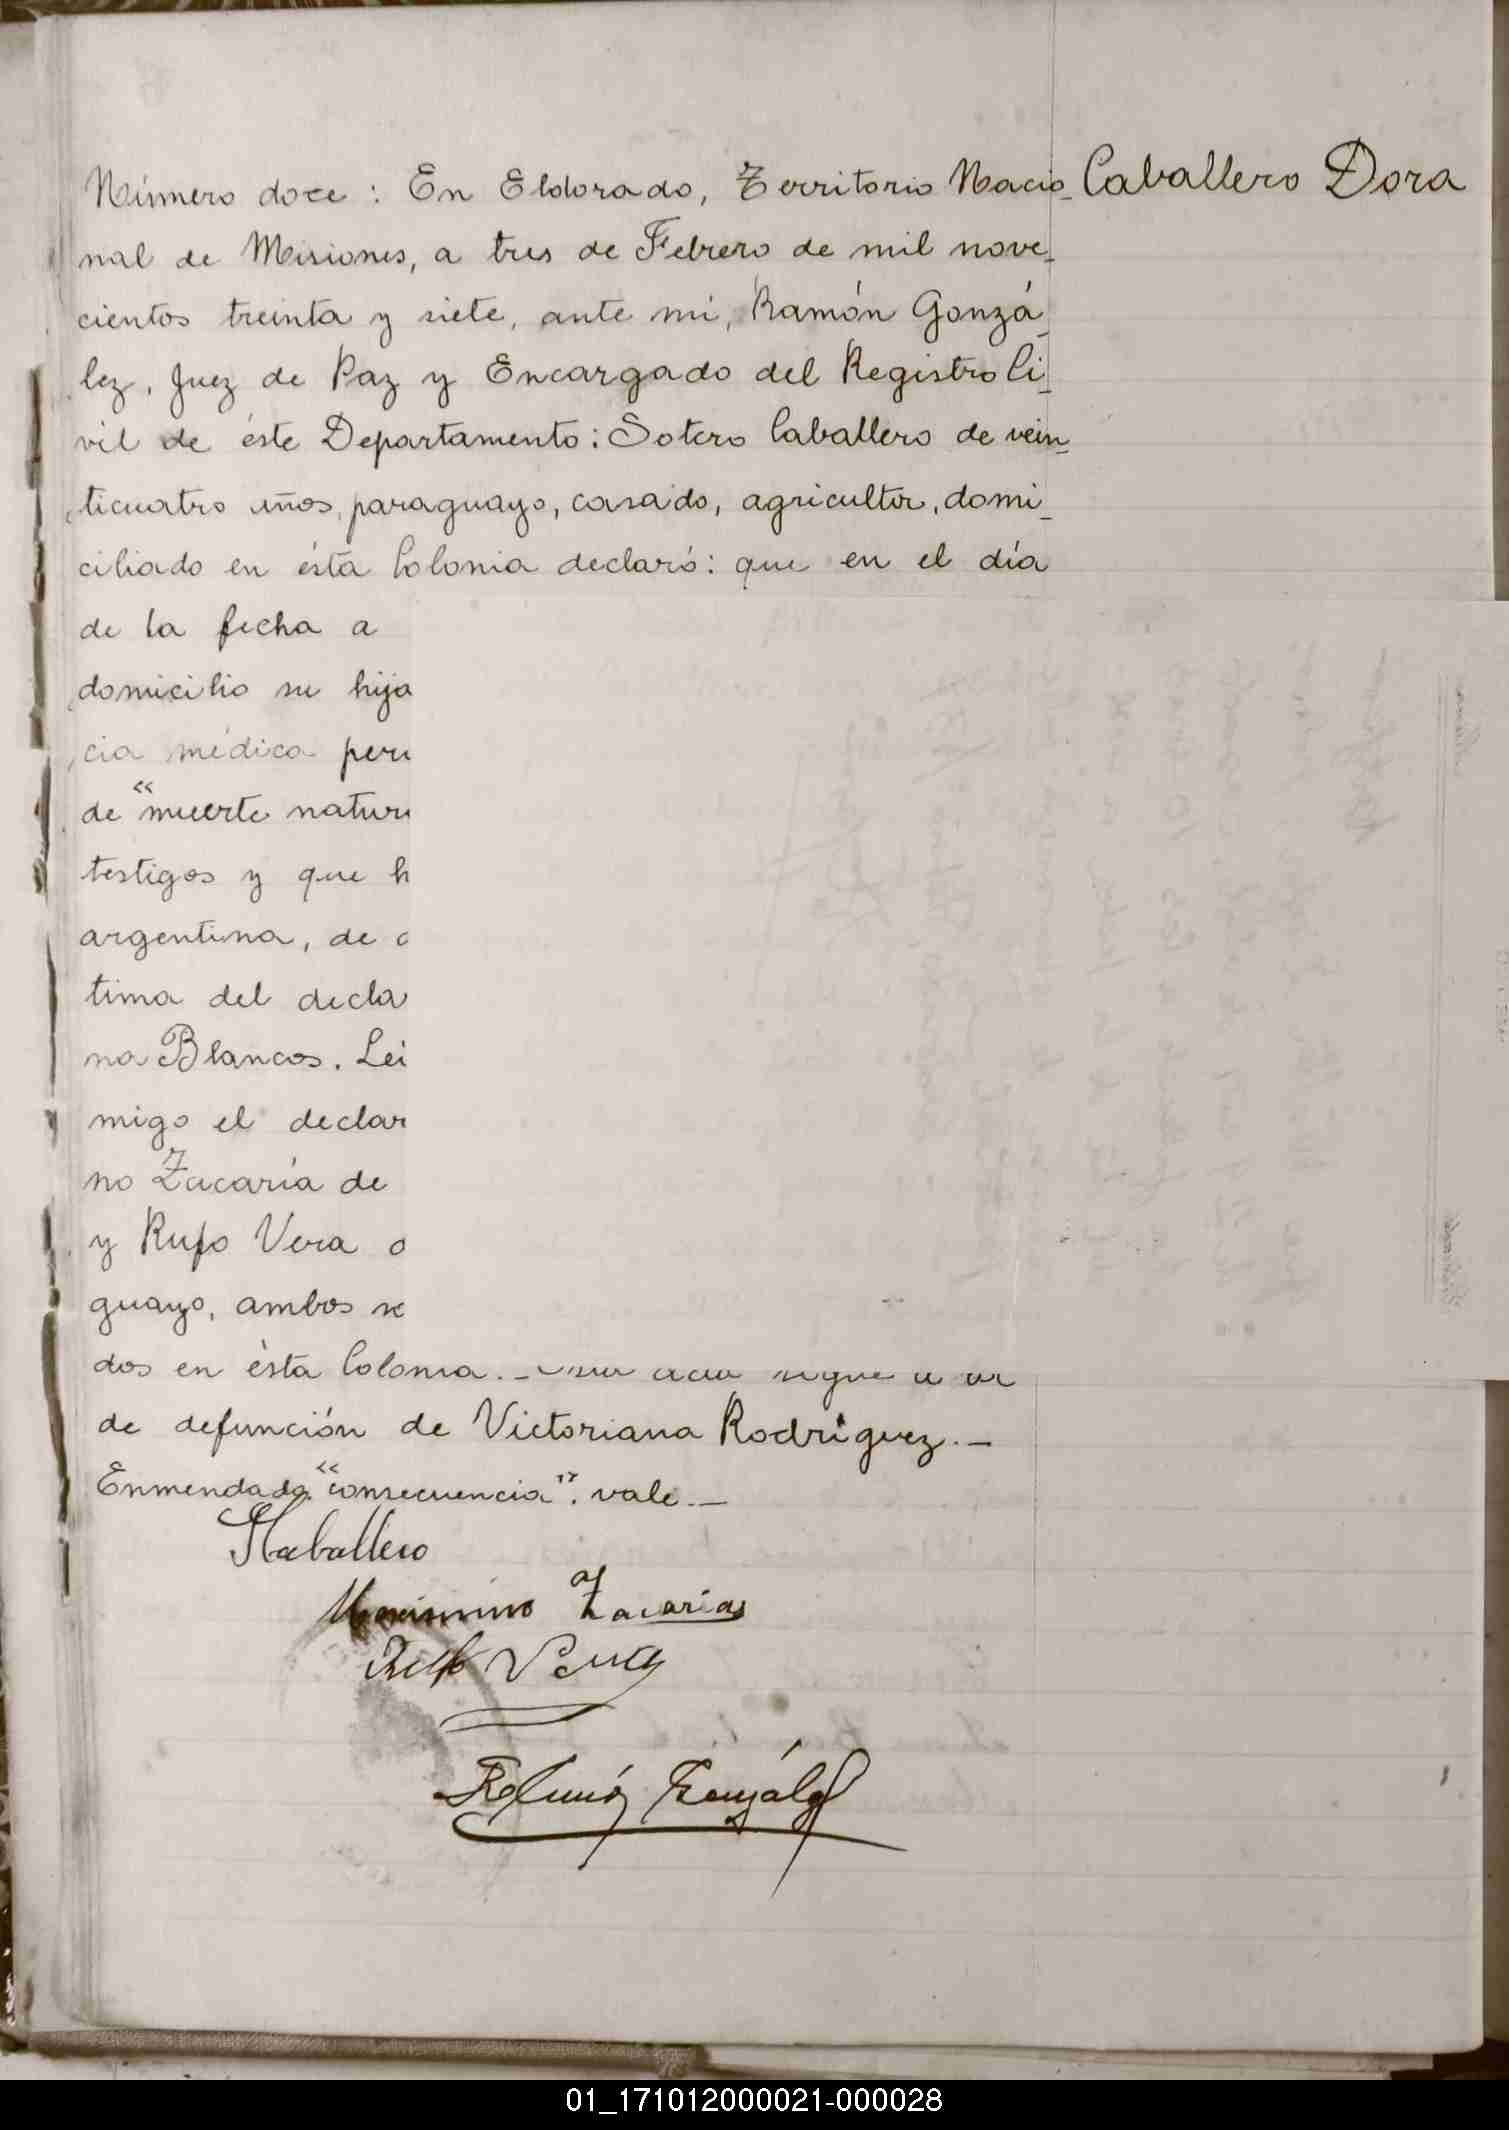 Número doce: En Eldorado, Territorio Nacio- Caballero Dora
nal de Misiones, a tres de Febrero de mil nove-
cientos treinta y siete, ante mí, Ramón Gonzá-
lez, Juez de Paz y Encargado del Registro Ci-
vil de éste Departamento: Sotero Caballero de vein-
ticuatro años, paraguayo, casado, agricultor, domi-
ciliado en ésta Colonia declaró: que en el día
de la fecha a
domicilio su hija
cia médica
de "muerte
testigos y que
argentina, de
tima del
na Blancos.
migo el
no Zacaría de
y Rufo Vera
guayo, ambos
dos en ésta Colonia.-
de defunción de Victoriana Rodríguez.-
Enmendado "consecuencia". vale.-
SCaballero
Maximino Zacarias
Rufo Vera
Ramón González
01_171012000021-000028